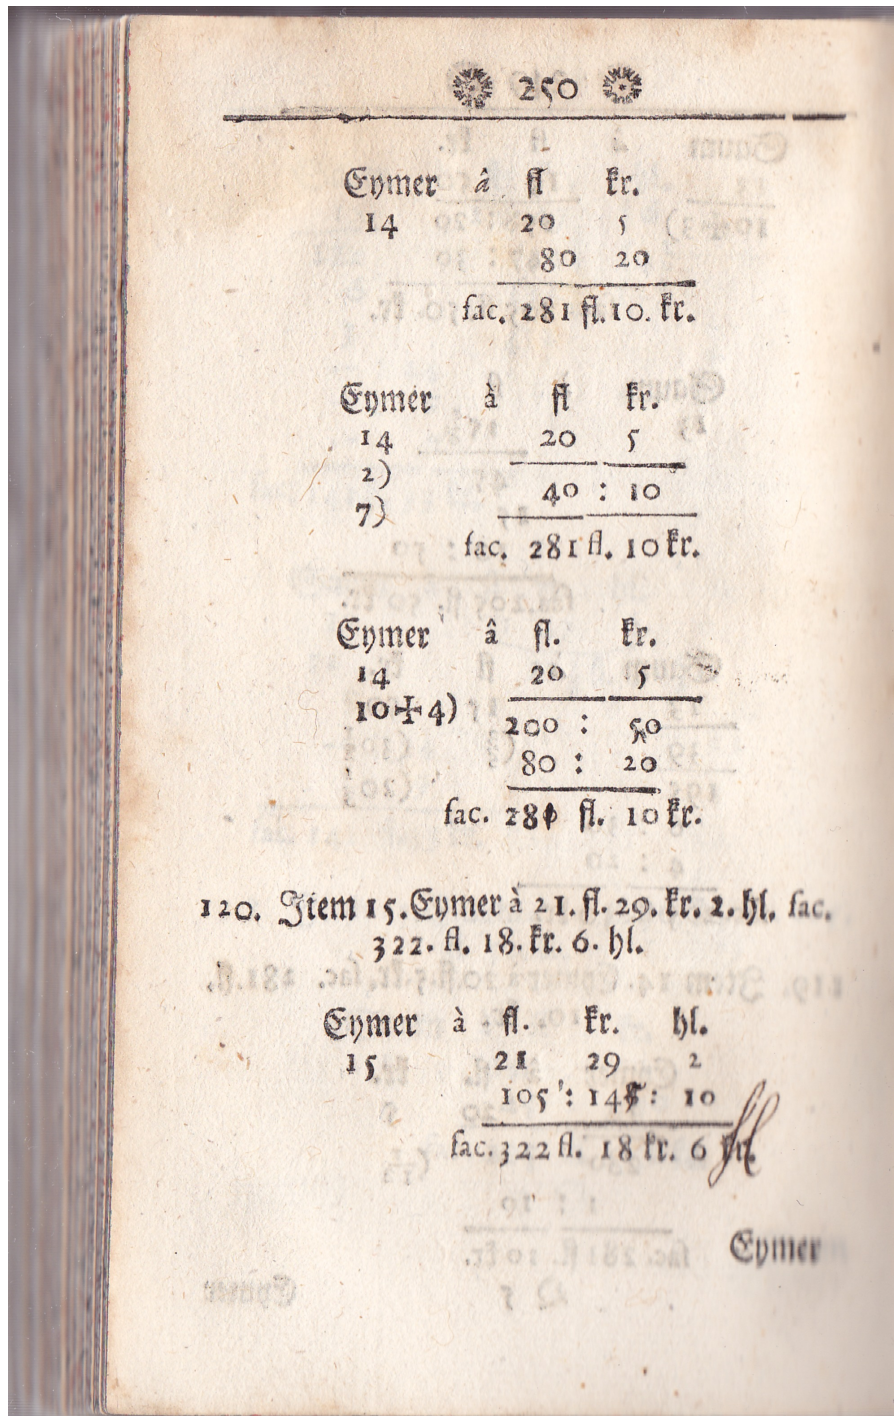 250
Eymer â fl kr.
14 20 5
80 20
fac. 281 fl. 10. kr.
Eymer à fl kr.
14 20 5
2)
40 : 10
7)
fac. 281 fl. 10 kr.
Eymer â fl. kr.
14 20 5
10+4)
200 : 50
80 : 20
fac. 281 fl. 10 kr.
120. Item 15. Eymer à 21. fl. 29. kr. 2. hl. fac.
322. fl. 18. kr. 6. hl.
Eymer à fl. kr. hl.
15 21 29 2
105 : 145 : 10
fac. 322 fl. 18 kr. 6
Eymer